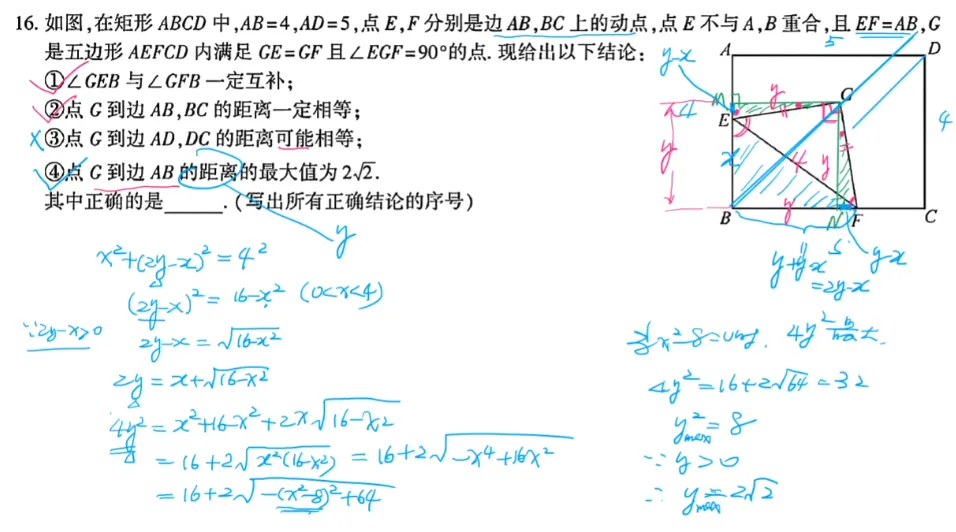 16. 如图,在矩形 ABCD 中,AB=4,AD=5,点 E,F 分别是边 AB,BC 上的动点,点 E 不与 A,B 重合,且 EF=AB,G
是五边形 AEFCD 内满足 GE=GF 且∠EGF=90°的点. 现给出以下结论:
①∠GEB 与∠GFB 一定互补;
②点 G 到边 AB,BC 的距离一定相等;
x③点 G 到边 AD,DC 的距离可能相等;
④点 G 到边 AB 的距离的最大值为 2√2.
其中正确的是______. (写出所有正确结论的序号)
y
A 5 D
y-x
M y G
4 E 4
y x 4 y
B y N F C
y+y-x 5 y-x
=2y-x
x²+(2y-x)²=4²
(2y-x)²=16-x² (0<x<4)
∵2y-x>0
2y-x=√16-x²
2y=x+√16-x²
4y²=x²+16-x²+2x√16-x²
=16+2√x²(16-x²) =16+2√-x⁴+16x²
=16+2√-(x²-8)²+64
x²-8=0时, 4y²
4y²=16+2√64=32
y²max=8
∵y>0
∴ymax=2√2